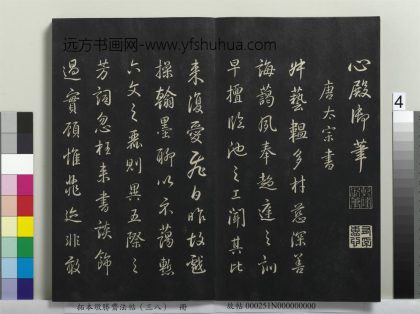 远方书画网- www.yfshuhua.com
心殿御筆
唐太宗書
藝韞多材慈深善
誨藹夙奉趨庭之訓
早擅臨池之工聞其比
来復愛飛白昨故戲
操翰墨聊以示藹
六文之麗則異五際之
芳詞忽枉来書談飾
過實顧惟菲迹非敢
4
拓本敬勝齋法帖（三八） 冊
故帖 000251N000000000